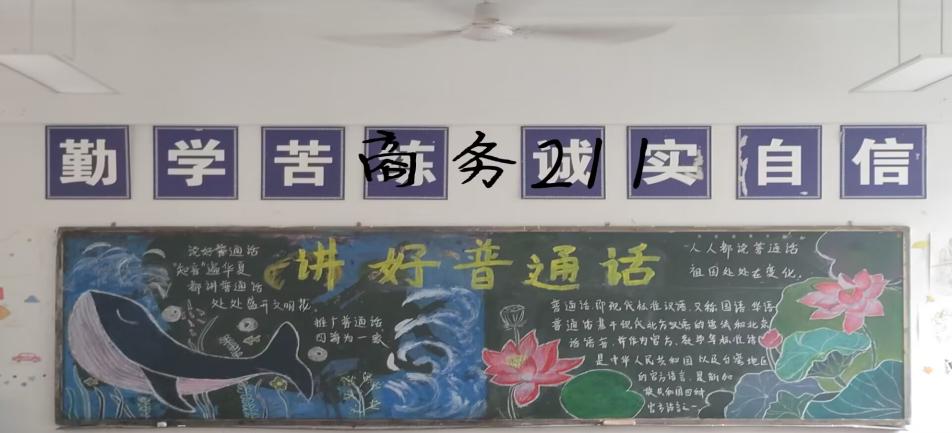 勤学苦练 诚实自信
商务211
讲好普通话
说好普通话
"知音"遍华夏
都讲普通话
处处盛开文明花
推广普通话
因为为一家
人人都说普通话
祖国处处在变化.
普通话即现代标准汉语,又称国语 华语
普通话基于现代北方汉语的语法和北京
话语音, 并作为官方、教学等标准语
是中华人民共和国以及台湾地区
的官方语言,是新加
坡共和国四种
官方语言之一